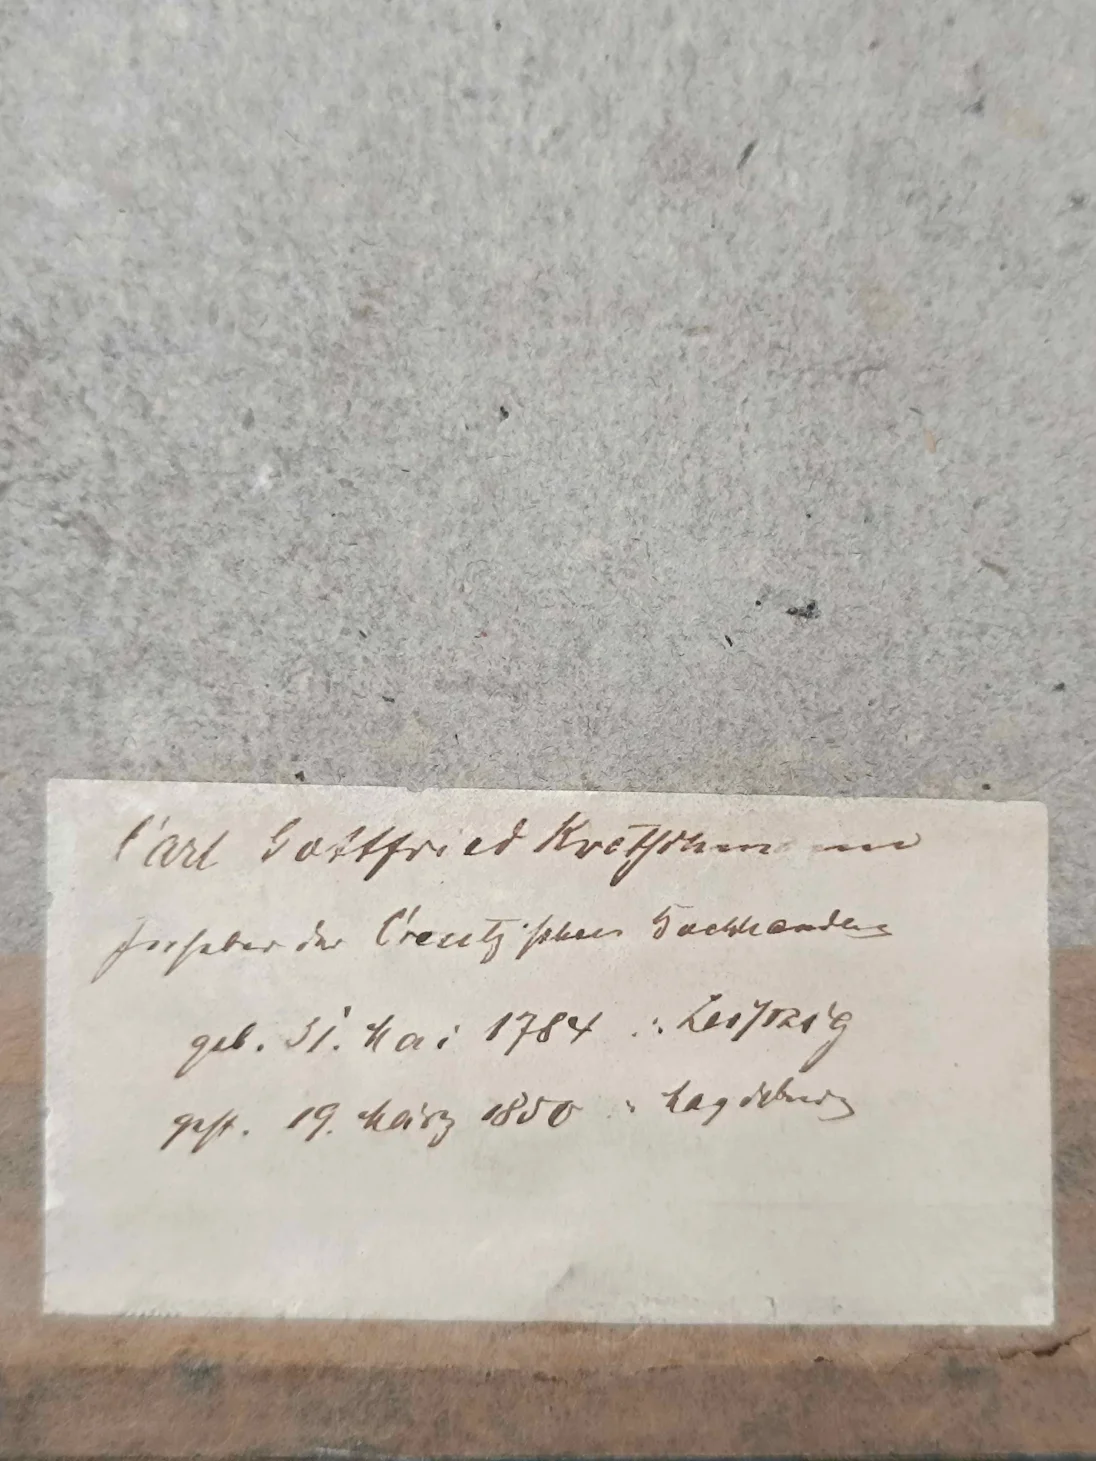 Carl Gottfried Kretschmann
Inhaber der Creutz'schen Buchhandlung
geb. 31. Mai 1784 i. Leipzig
gest. 19. März 1850 i. Magdeburg